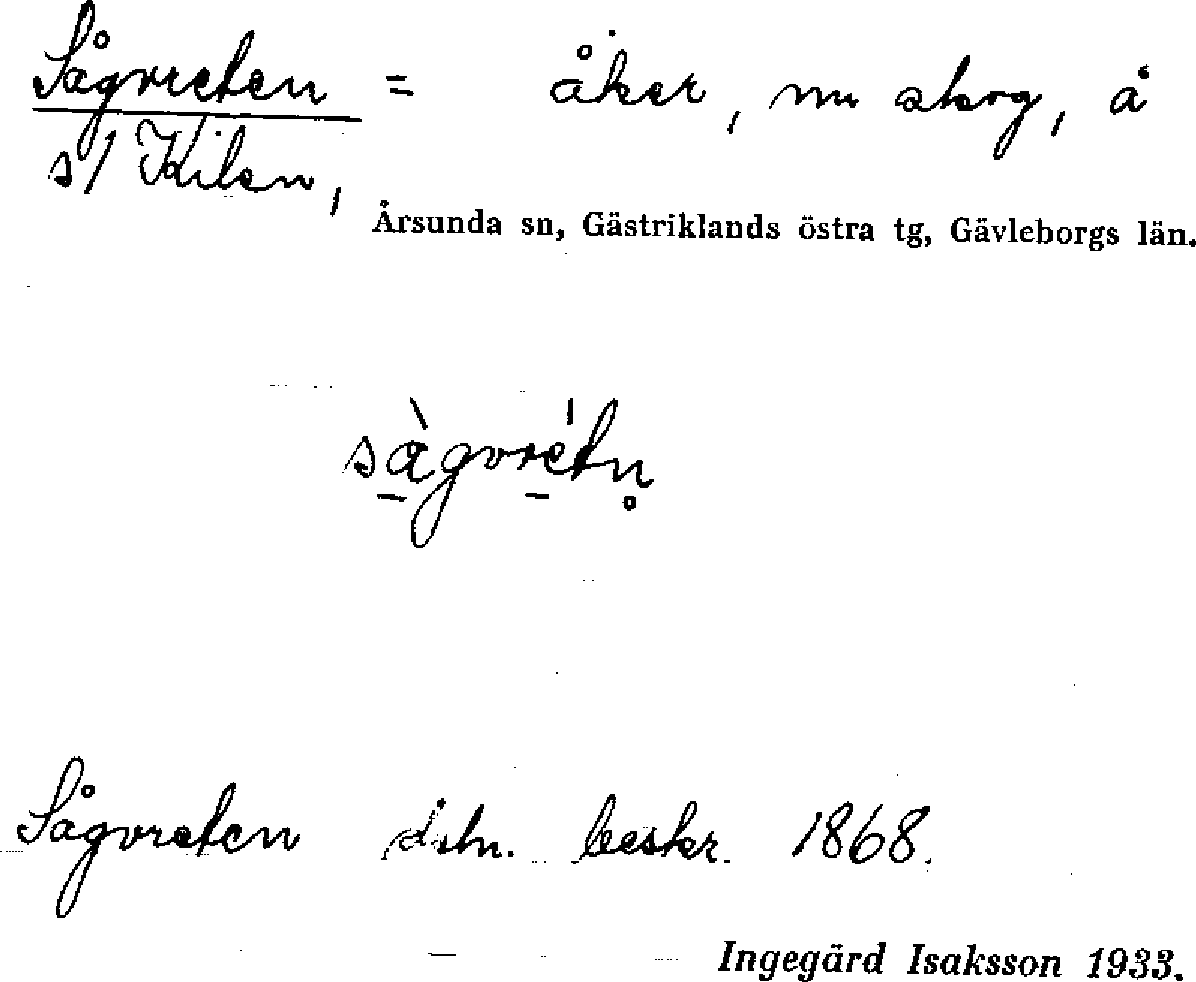 Sågvreten = åker, nu skog, å
s/ Kilen,
Årsunda sn, Gästriklands östra tg, Gävleborgs län.
sàgvrétn̥
Sågvreten beskr. 1868.
Ingegärd Isaksson 1933.